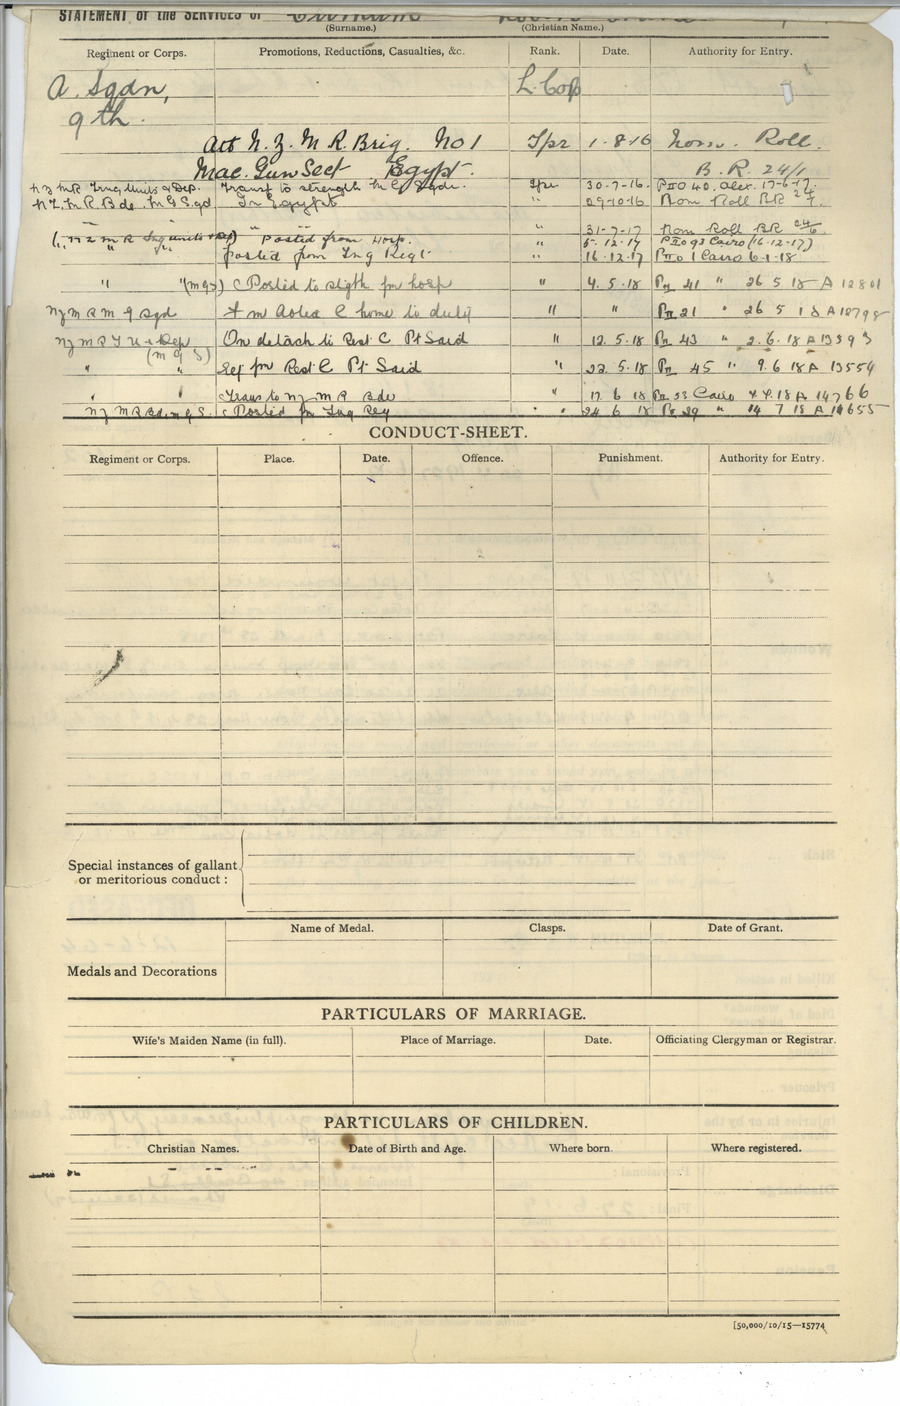 STATEMENT of the SERVICES of
(Surname.) (Christian Name.)
Regiment or Corps. Promotions, Reductions, Casualties, &c. Rank. Date. Authority for Entry.
A. Sqdn, L Cop
9th.
Att N. Z. M R. Brig. No 1 Tpr 1.8.16 Nom. Roll.
Mac. Gun Sect Egypt. B. R. 24/1
NZ MR Trng Units & Dep. Transf to strength M G Sqdn. Tpr 30-7-16. P II O 40. Alex. 17-6-17.
N.Z. M R. Bde. M G Sqd In Egypt " 29-10-16 Nom Roll BR
" " " 31-7-17 Nom Roll BR
(N Z M R Trng units & Dep) Posted from Hosp. " 5.12.17 P II O 93 Cairo (16.12.17)
" " Posted from Trng Regt " 16.12.17 P II O 1 Cairo 6.1.18
" " (mgs) Posted to stgth fm hosp " 4.5.18 PII 41 " 26 5 18 A 12801
NZ M R M G Sqd Aotea C home to duty " " PII 21 " 26 5 18 A 12798
NZ M R T U & Dep On detach to Rest C Pt Said 12.5.18 PII 43 " 2.6.18 A
(M G S)
" " fm Rest C Pt Said " 22.5.18 PII 45 " 9.6.18 A 13554
" " Trans to NZ M R Bde " 17 6 18 Cairo 18 A 14766
NZ M R Bd. m g S. Posted fm Trng Reg " " 24 6 18 PII 29 " 14 7 18 A
CONDUCT-SHEET.
Regiment or Corps. Place. Date. Offence. Punishment. Authority for Entry.
Special instances of gallant
or meritorious conduct:
Name of Medal. Clasps. Date of Grant.
Medals and Decorations
PARTICULARS OF MARRIAGE.
Wife's Maiden Name (in full). Place of Marriage. Date. Officiating Clergyman or Registrar.
PARTICULARS OF CHILDREN.
Christian Names. Date of Birth and Age. Where born. Where registered.
[50,000/10/15—15774